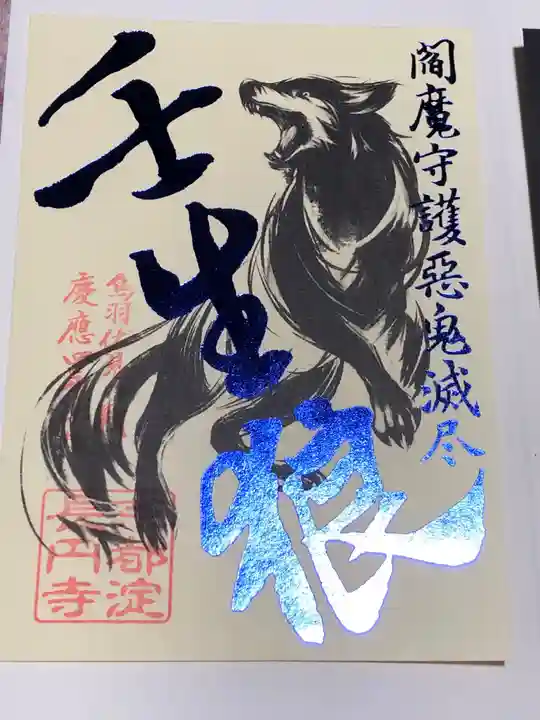 閻魔守護惡鬼滅尽
壬生狼
鳥羽伏見
慶應四
京都淀
長円寺